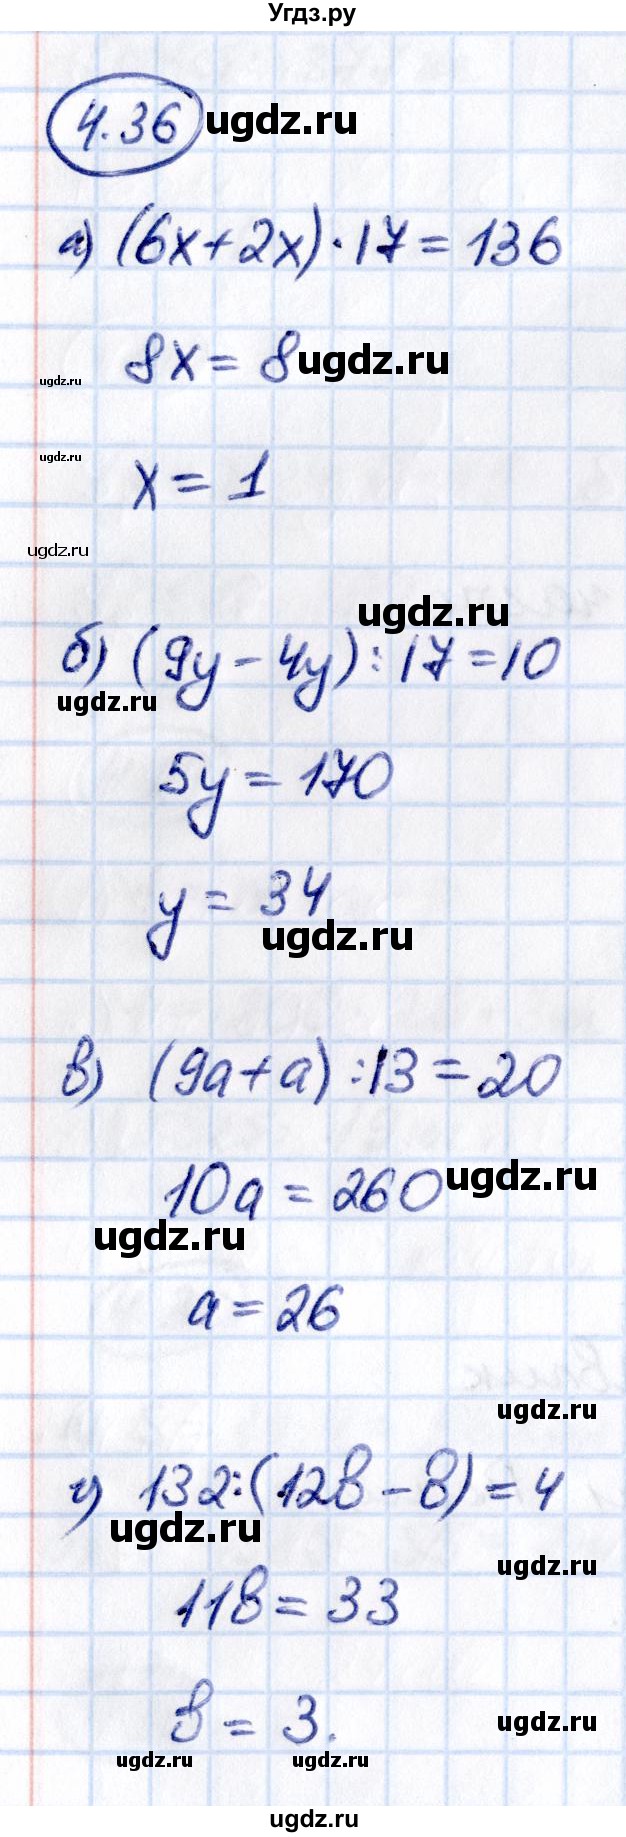 Угдз.ру
4.36 ugdz.ru
а) (6x+2x)·17=136
8x=8 ugdz.ru
ugdz.ru
ugdz.ru
x=1
ugdz.ru
ugdz.ru
б) (9y-4y):17=10
ugdz.ru
5y=170
y=34
ugdz.ru
в) (9a+a):13=20
10a=260 ugdz.ru
ugdz.ru
a=26
ugdz.ru
г) 132:(12в-в)=4
ugdz.ru
ugdz.ru
11в=33
в=3.
ugdz.ru
ugdz.ru ugdz.ru
ugdz.ru